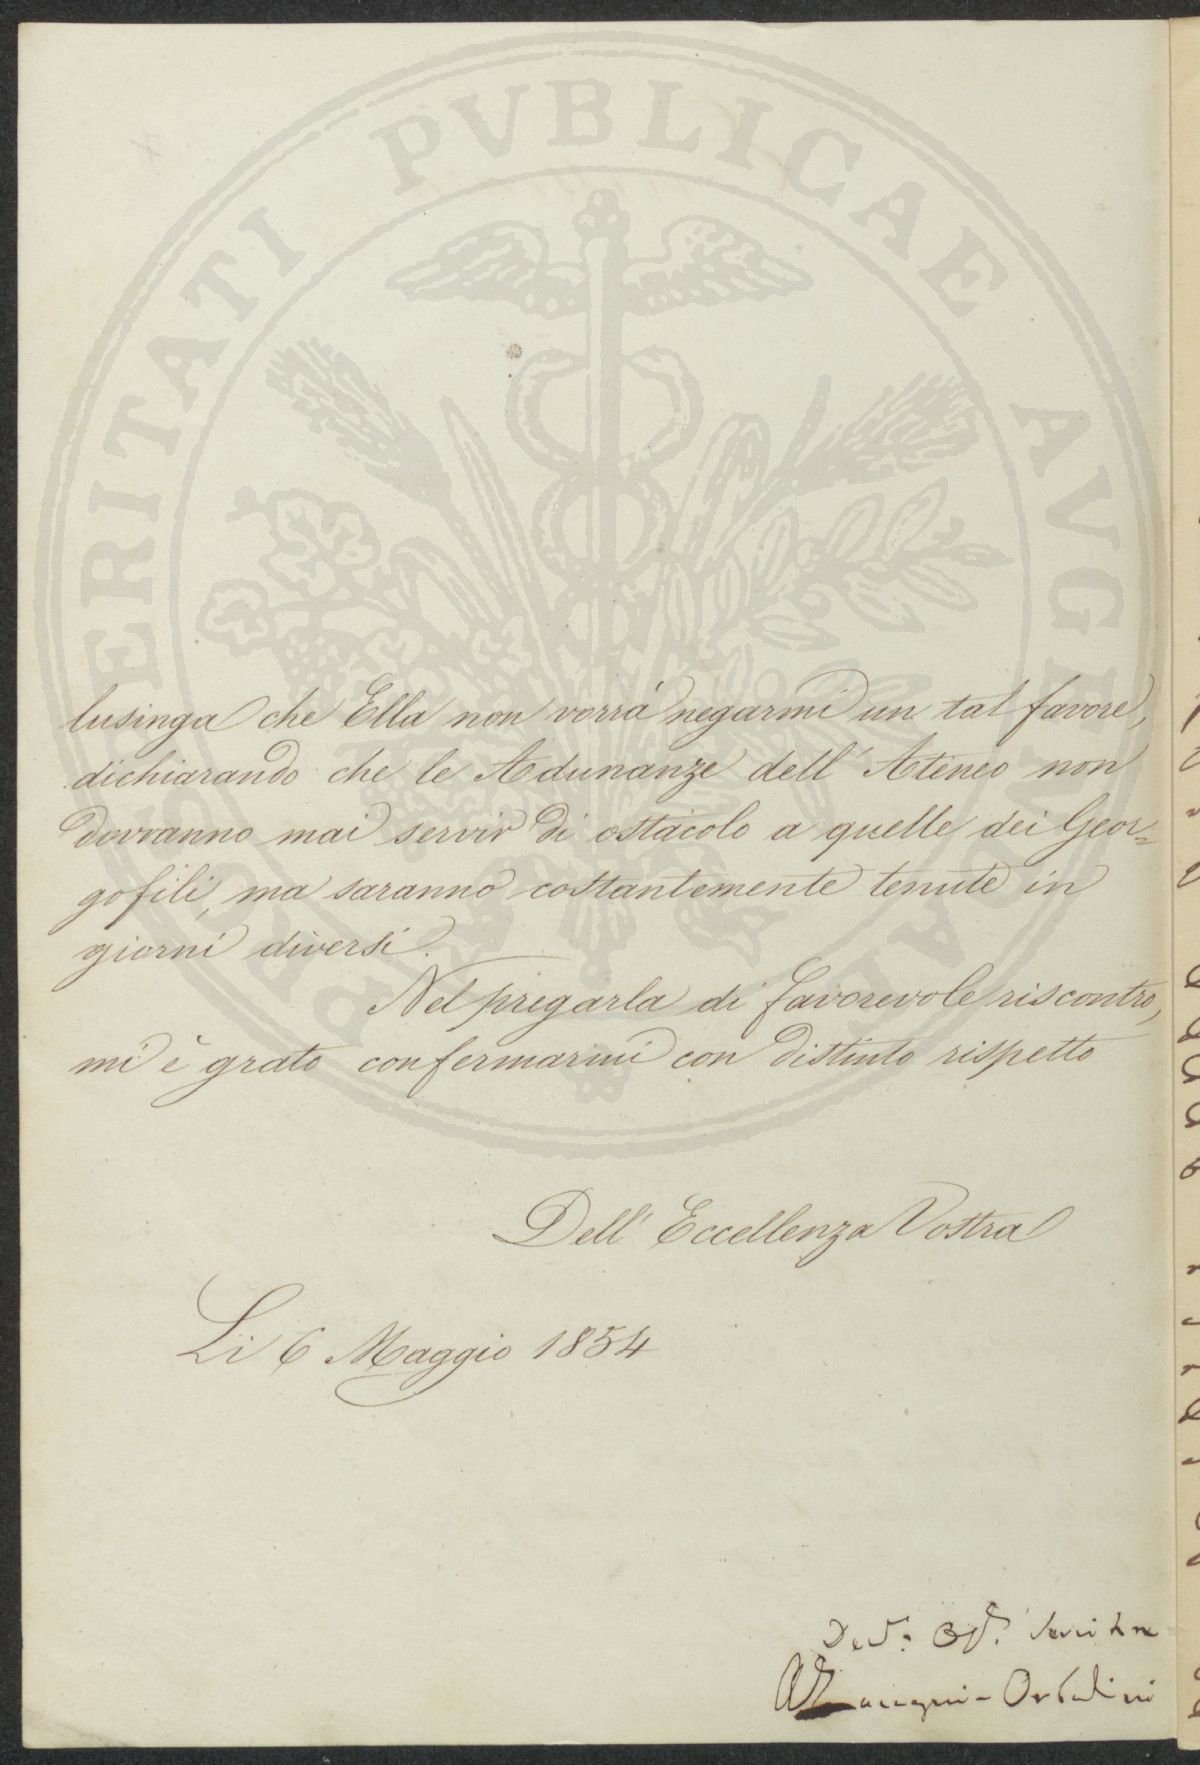 PROSPERITATI PVBLICAE AVGENDAE
lusinga che Ella non vorrá negarmi un tal favore,
dichiarando che le Adunanze dell' Ateneo non
dovranno mai servir di ostacolo a quelle dei Geor=
gofili, ma saranno costantemente tenute in
giorni diversi.
Nel pregarla di favorevole riscontro,
mi è grato confermarmi con distinto rispetto
Dell' Eccellenza Vostra
Li 6 Maggio 1854
Servitore
Zuccagni-Orlandini